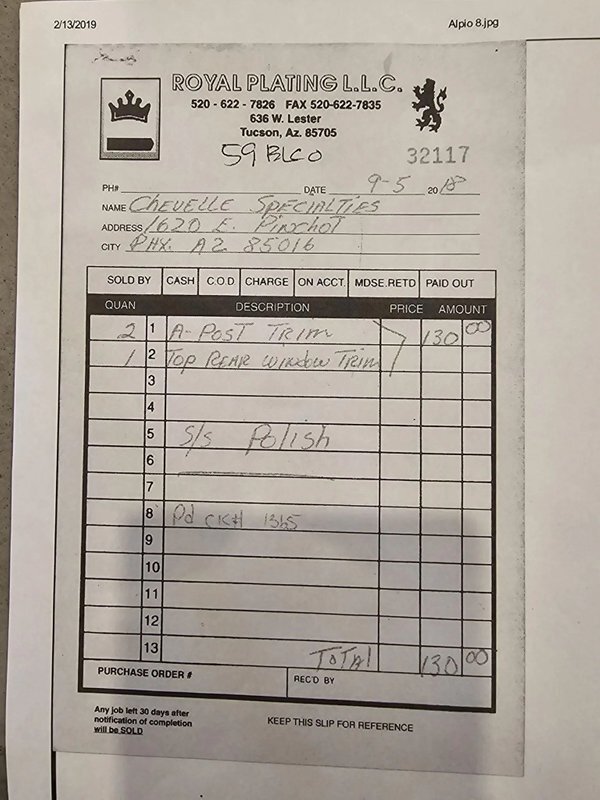 2/13/2019 Alpio 8.jpg
ROYAL PLATING L.L.C.
520 - 622 - 7826 FAX 520-622-7835
636 W. Lester
Tucson, Az. 85705
59 BLCO 32117
PH# DATE 9-5 2018
NAME CHEVELLE SPECIALTIES
ADDRESS 1620 E. Pinchot
CITY PHX. AZ 85016
SOLD BY CASH C.O.D CHARGE ON ACCT. MDSE.RETD PAID OUT
QUAN DESCRIPTION PRICE AMOUNT
2 1 A-POST TRIM 130 00
1 2 TOP REAR WINDOW TRIM
3
4
5 S/S Polish
6
7
8 Pd CK# 1365
9
10
11
12
13 TOTAL 130 00
PURCHASE ORDER # REC'D BY
Any job left 30 days after
notification of completion
will be SOLD
KEEP THIS SLIP FOR REFERENCE